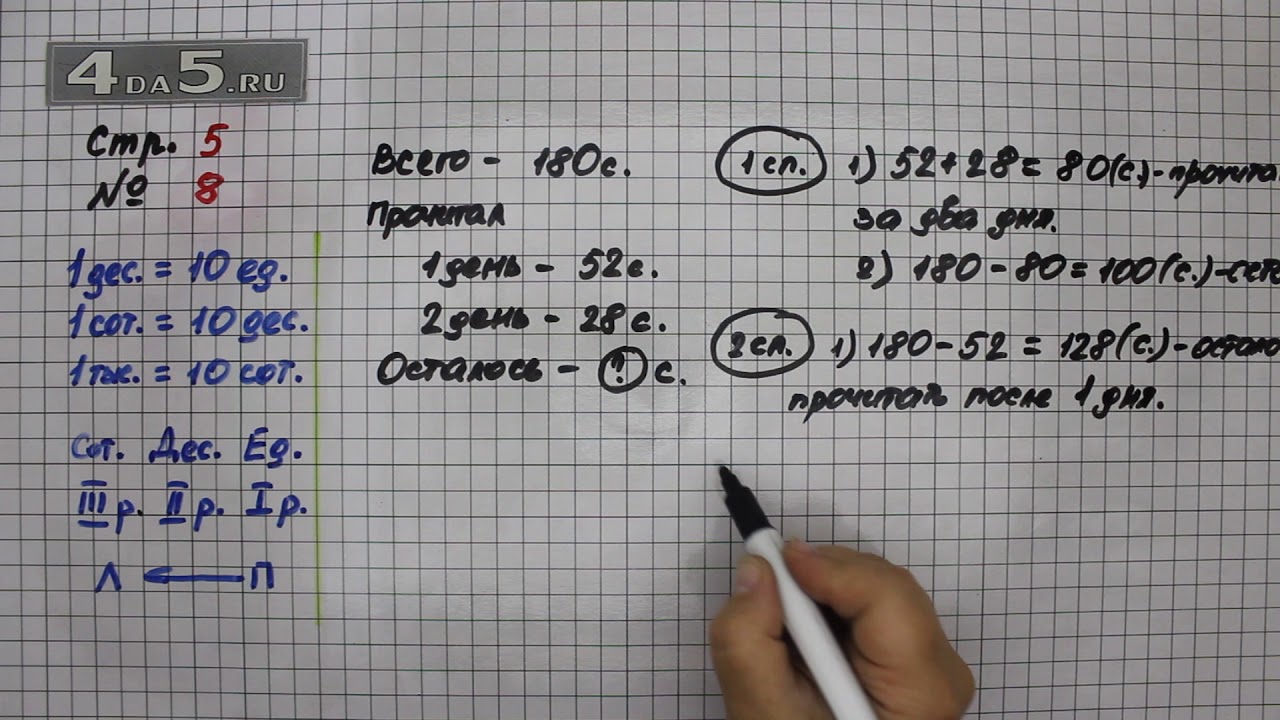 4DA5.RU
Стр. 5
№ 8
1 дес. = 10 ед.
1 сот. = 10 дес.
1 тыс. = 10 сот.
Сот. Дес. Ед.
III р. II р. I р.
Л ← П
Всего - 180 с.
Прочитал
1 день - 52 с.
2 день - 28 с.
Осталось - ? с.
1 сп. 1) 52 + 28 = 80 (с.) - прочита
за два дня.
2) 180 - 80 = 100 (с.)
2 сп. 1) 180 - 52 = 128 (с.) - остало
прочитать после 1 дня.